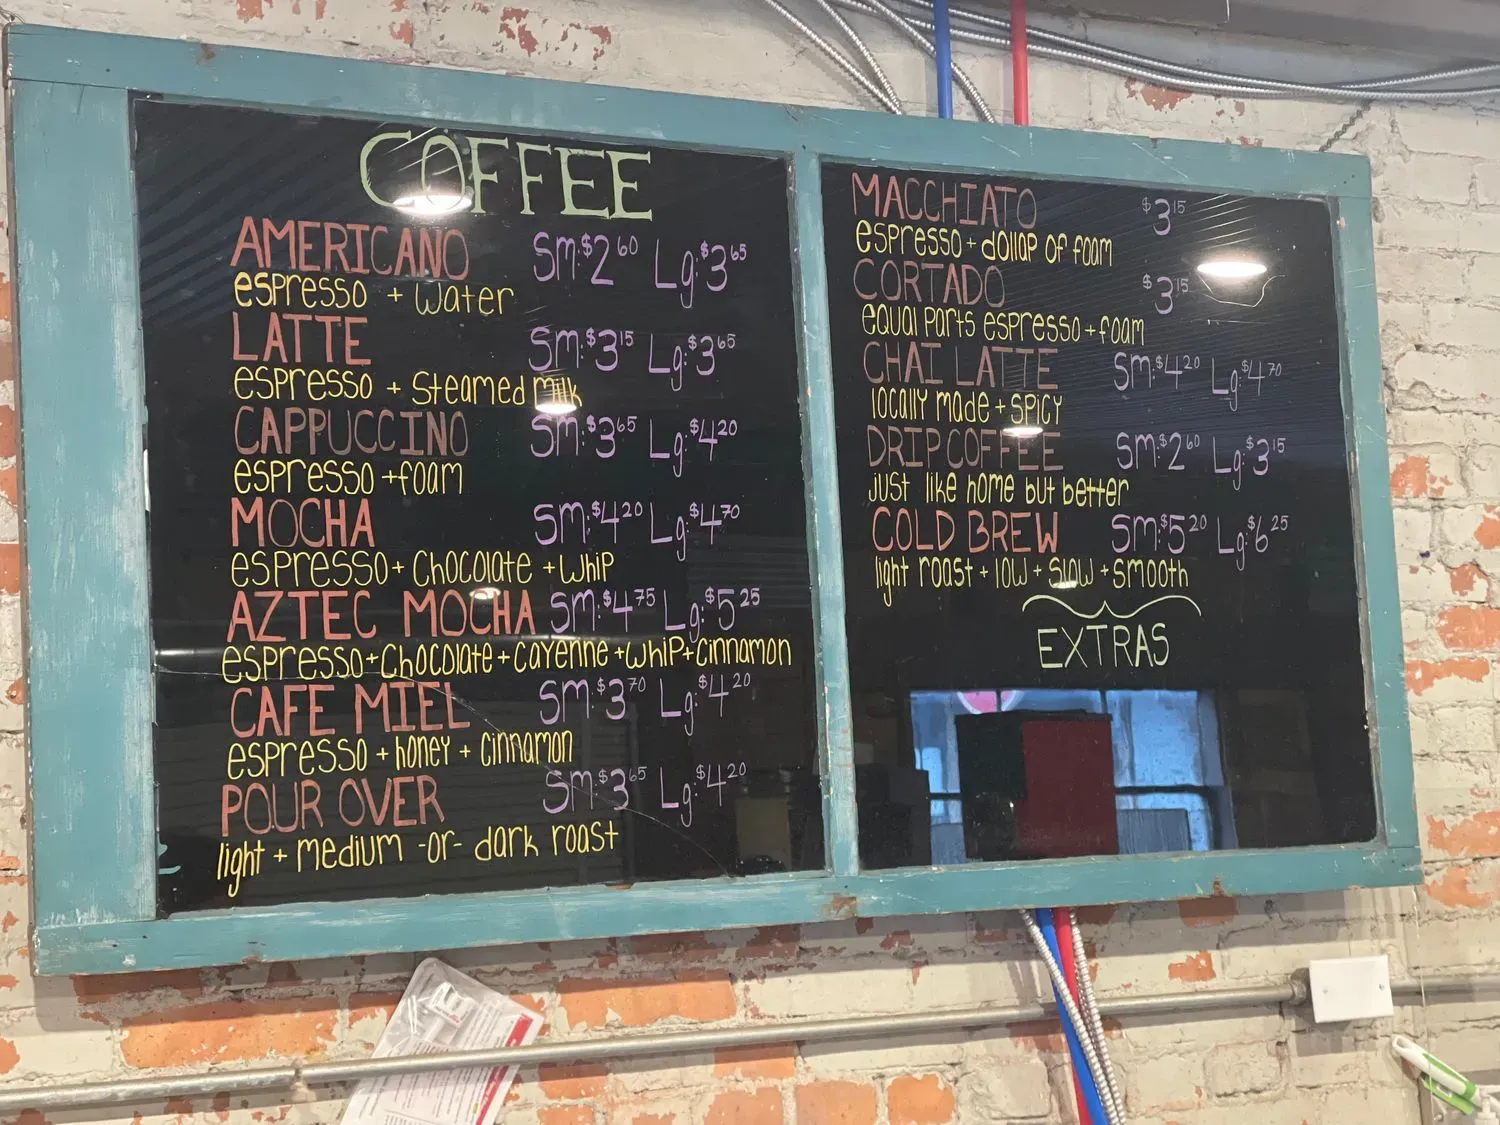 COFFEE
AMERICANO Sm:$2 60 Lg:$3 65
espresso + water
LATTE Sm:$3 15 Lg:$3 65
espresso + steamed milk
CAPPUCCINO Sm:$3 65 Lg:$4 20
espresso + foam
MOCHA Sm:$4 20 Lg:$4 70
espresso + chocolate + whip
AZTEC MOCHA Sm:$4 75 Lg:$5 25
espresso + chocolate + cayenne + whip + cinnamon
CAFE MIEL Sm:$3 70 Lg:$4 20
espresso + honey + cinnamon
POUR OVER Sm:$3 65 Lg:$4 20
light + medium -or- dark roast
MACCHIATO $3 15
espresso + dollap of foam
CORTADO $3 15
equal parts espresso + foam
CHAI LATTE Sm:$4 20 Lg:$4 70
locally made + spicy
DRIP COFFEE Sm:$2 60 Lg:$3 15
just like home but better
COLD BREW Sm:$5 20 Lg:$6 25
light roast + low + slow + smooth
EXTRAS